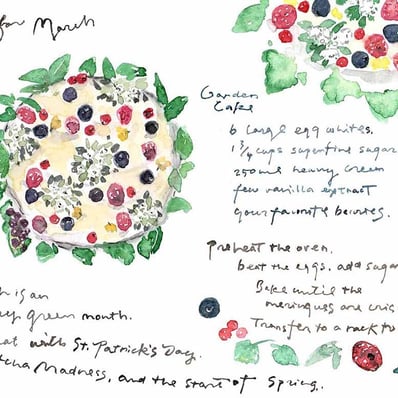 for March
Garden
Cake
6 large egg whites.
1 3/4 cups superfine sugar
250ml heavy cream
few vanilla extract
your favorite berries.
Preheat the oven.
beat the eggs. add sugar
Bake until the
meringues are cris
Transfer to a rack to
h is an
green month.
at with St. Patrick's Day.
tcha Madness, and the start of Spring.